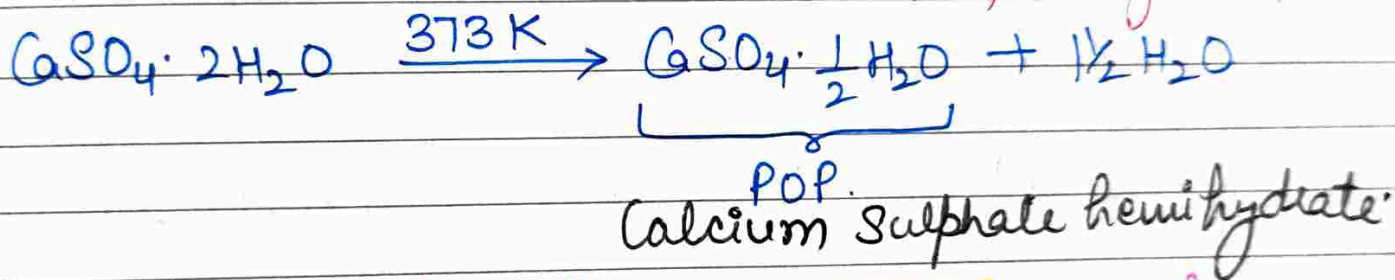 CaSO₄· 2H₂O 373 K → CaSO₄· ½ H₂O + 1½ H₂O
POP.
Calcium Sulphate hemihydrate.